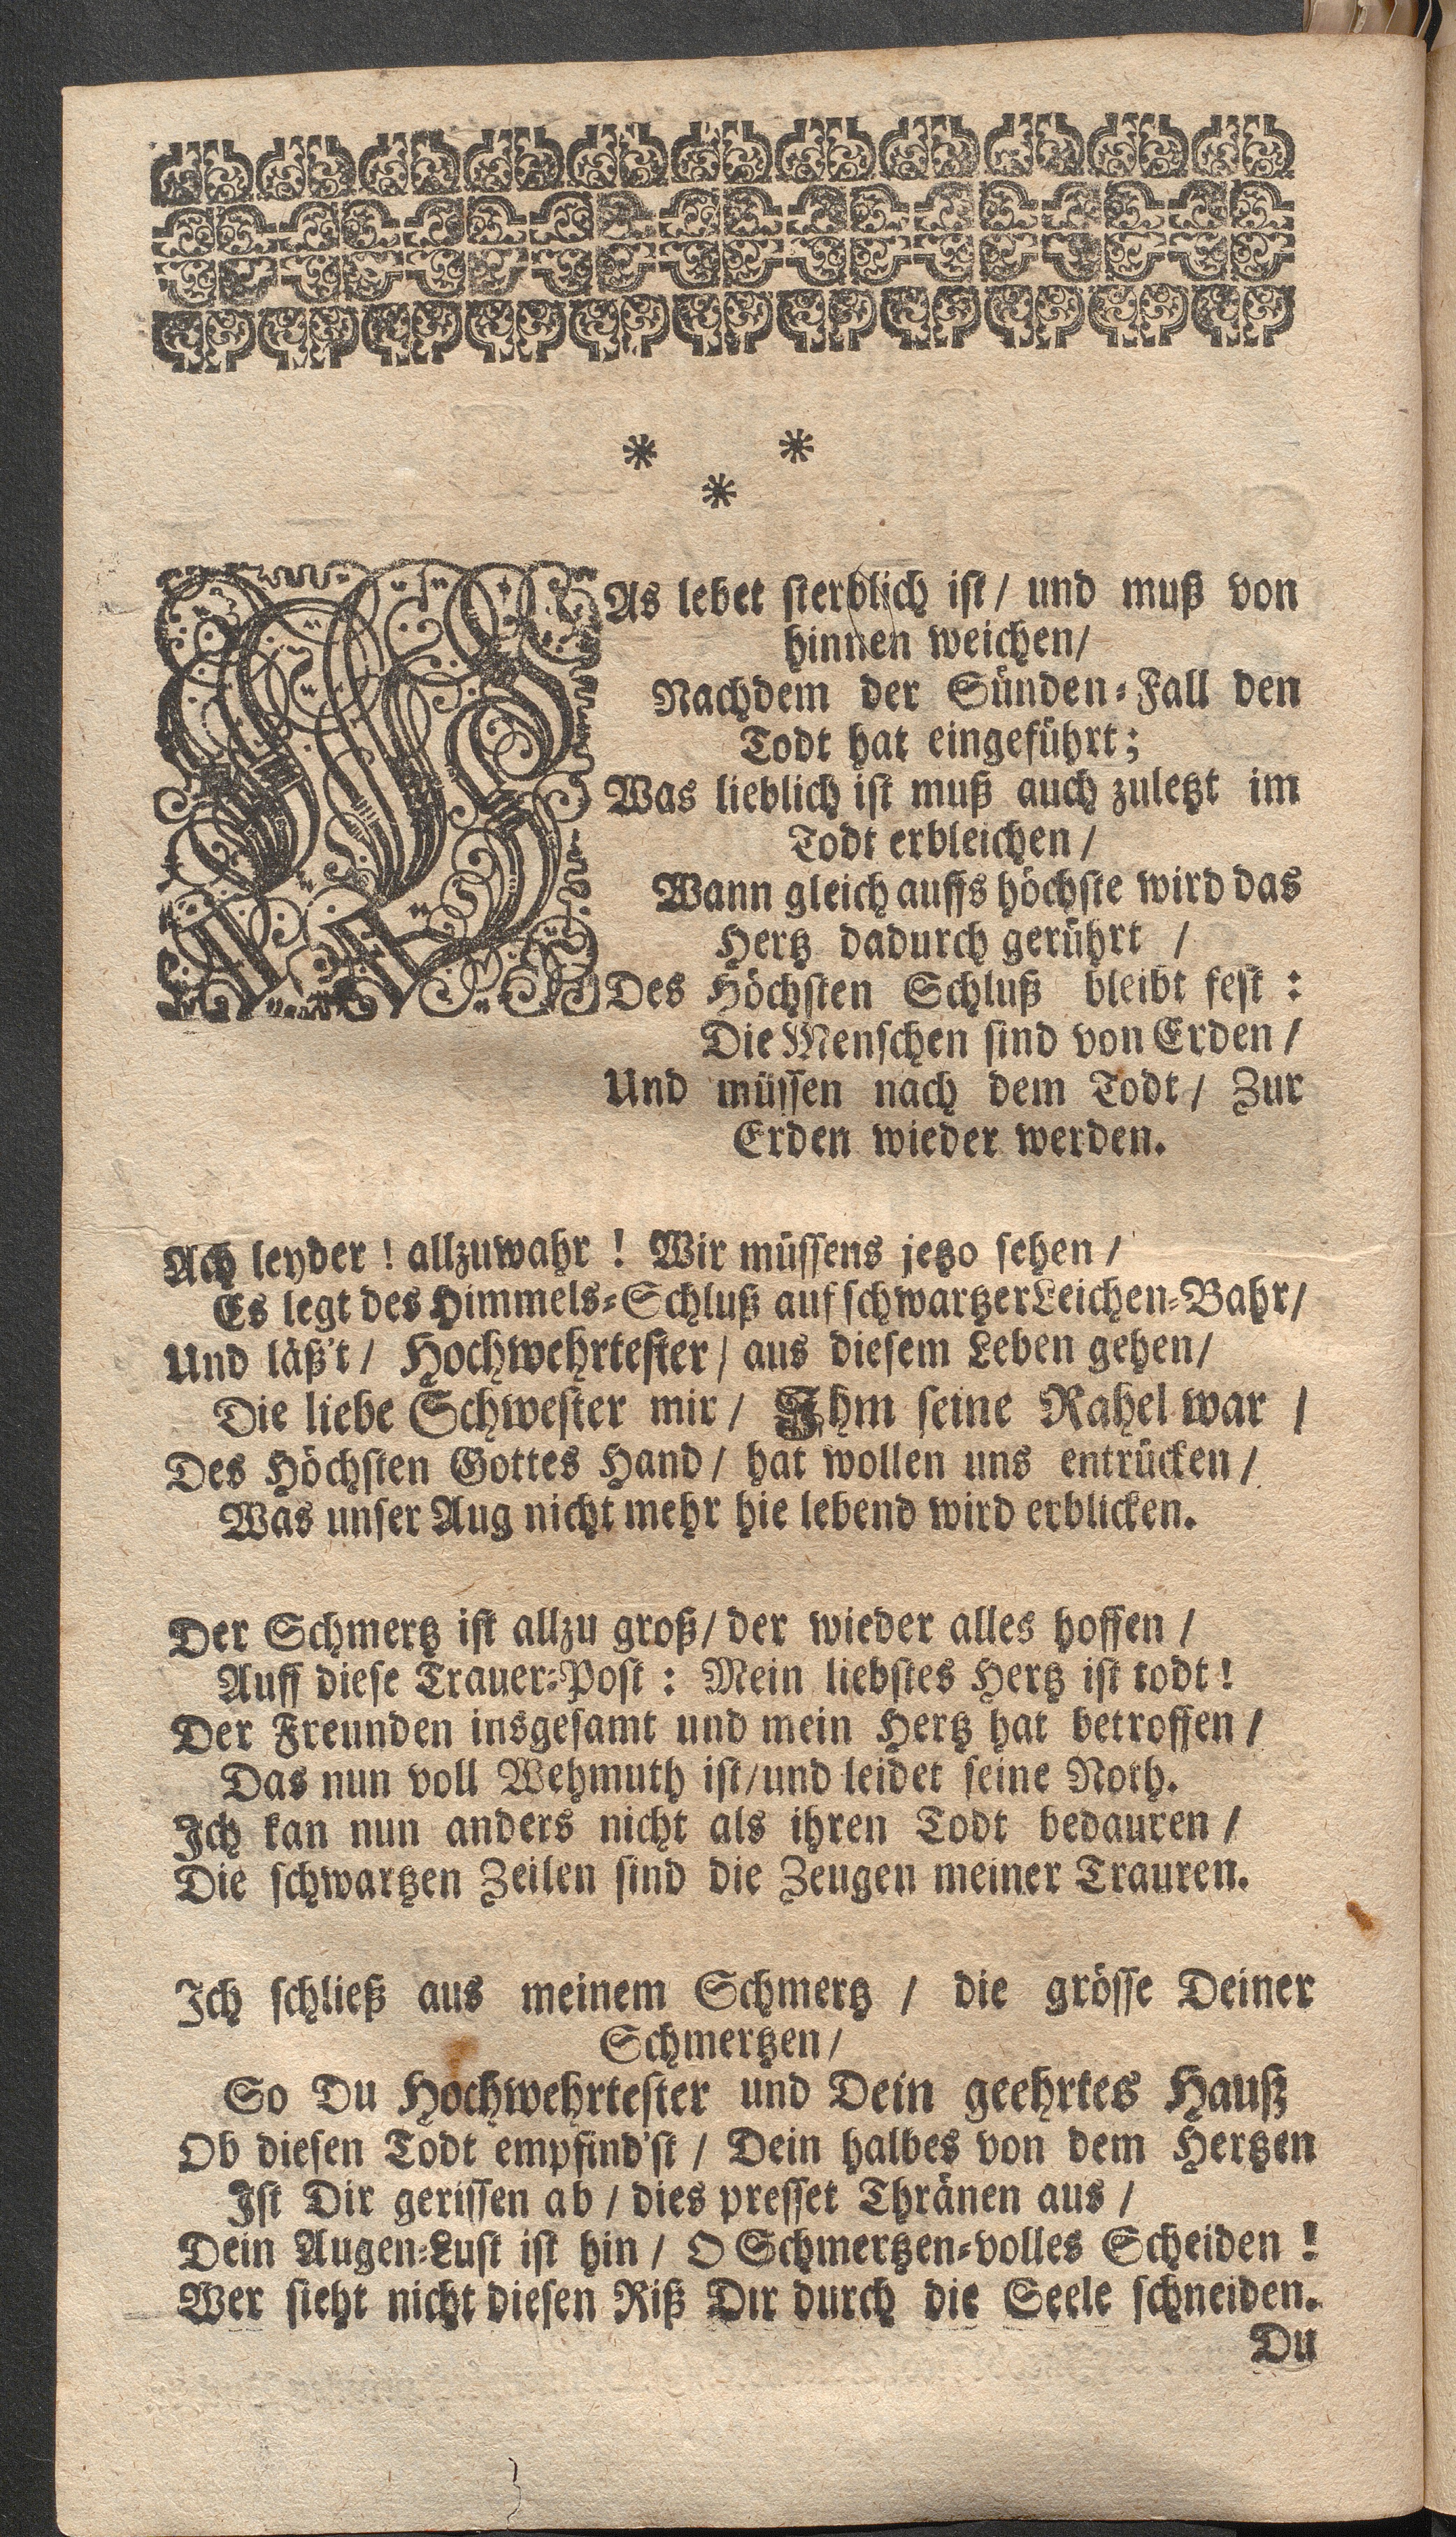 * *
*
WAs lebet sterblich ist / und muß von
hinnen weichen /
Nachdem der Sünden-Fall den
Todt hat eingeführt;
Was lieblich ist muß auch zuletzt im
Todt erbleichen /
Wann gleich auffs höchste wird das
Hertz dadurch gerührt /
Des Höchsten Schluß bleibt fest :
Die Menschen sind von Erden /
Und müssen nach dem Todt / Zur
Erden wieder werden.
Ach leyder ! allzuwahr ! Wir müssens jetzo sehen /
Es legt des Himmels-Schluß auf schwartzer Leichen-Bahr /
Und läß't / Hochwehrtester / aus diesem Leben gehen /
Die liebe Schwester mir / Ihm seine Rahel war /
Des Höchsten Gottes Hand / hat wollen uns entrücken /
Was unser Aug nicht mehr hie lebend wird erblicken.
Der Schmertz ist allzu groß / der wieder alles hoffen /
Auff diese Trauer-Post : Mein liebstes Hertz ist todt !
Der Freunden insgesamt und mein Hertz hat betroffen /
Das nun voll Wehmuth ist / und leidet seine Noth.
Ich kan nun anders nicht als ihren Todt bedauren /
Die schwartzen Zeilen sind die Zeugen meiner Trauren.
Ich schließ aus meinem Schmertz / die grösse Deiner
Schmertzen /
So Du Hochwehrtester und Dein geehrtes Hauß
Ob diesen Todt empfind'st / Dein halbes von dem Hertzen
Ist Dir gerissen ab / dies presset Thränen aus /
Dein Augen-Lust ist hin / O Schmertzen-volles Scheiden !
Wer sieht nicht diesen Riß Dir durch die Seele schneiden.
Du